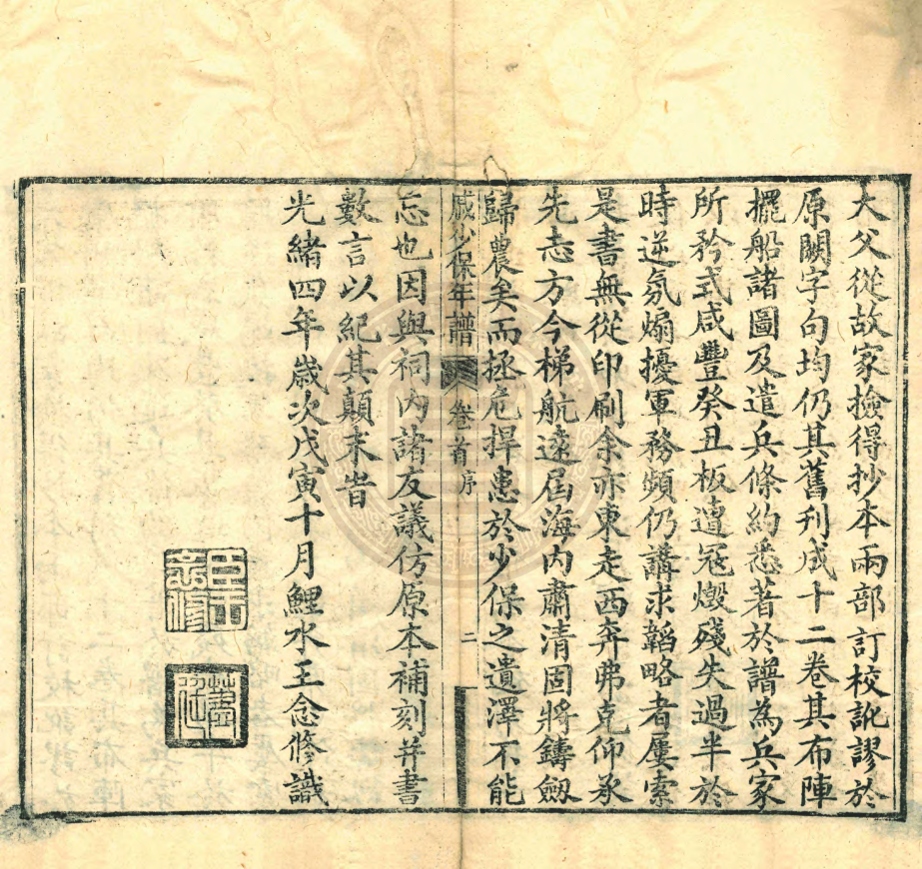 大父從故家撿得抄本兩部訂校訛謬於
原闕字句均仍其舊刊成十二卷其布陣
擺船諸圖及遣兵條約悉著於譜為兵家
所矜式咸豐癸丑板遭冦燬殘失過半於
時逆氛煽擾軍務頻仍講求韜略者屢索
是書無從印刷余亦東走西奔弗克仰承
先志方今梯航遠屆海內肅清固將鑄劒
歸農矣而拯危捍患於少保之遺澤不能
戚少保年譜 卷首序 二
忘也因與祠內諸友議仿原本補刻并書
數言以紀其顛末旹
光緒四年歲次戊寅十月鯉水王念修識